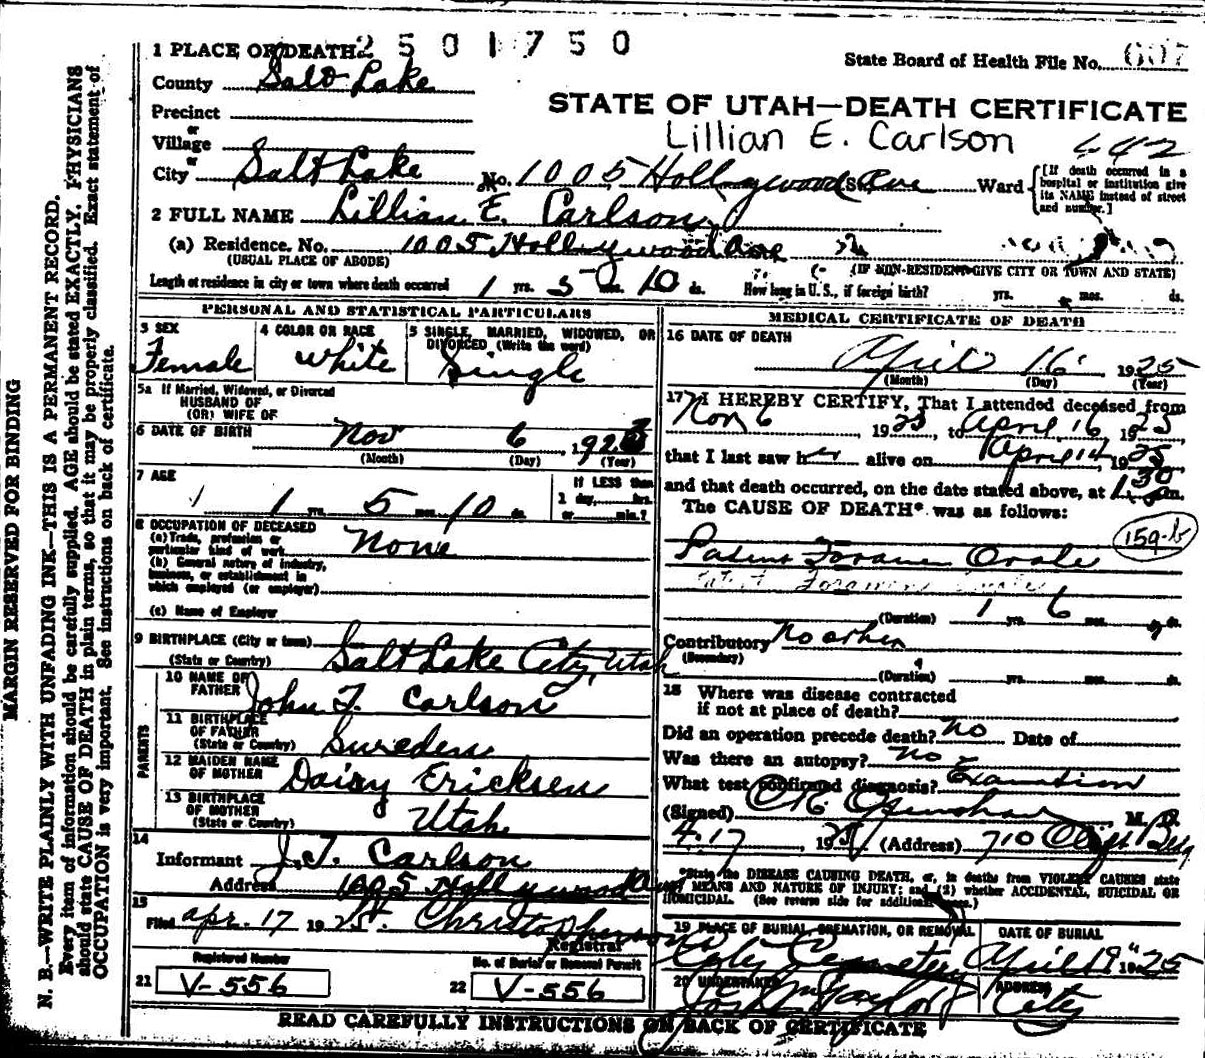 MARGIN RESERVED FOR BINDING
N. B.—WRITE PLAINLY WITH UNFADING INK—THIS IS A PERMANENT RECORD.
Every item of information should be carefully supplied. AGE should be stated EXACTLY. PHYSICIANS
should state CAUSE OF DEATH in plain terms, so that it may be properly classified. Exact statement of
OCCUPATION is very important. See instructions on back of certificate.
2501750
1 PLACE OF DEATH
County Salt Lake
Precinct
or
Village
or
City Salt Lake No. 1005 Hollywood St. Ave Ward
[If death occurred in a
hospital or institution give
its NAME instead of street
and number.]
State Board of Health File No. 607
STATE OF UTAH—DEATH CERTIFICATE
Lillian E. Carlson
442
2 FULL NAME Lillian E. Carlson
(a) Residence. No. 1005 Hollywood Ave
(USUAL PLACE OF ABODE)
(IF NON-RESIDENT GIVE CITY OR TOWN AND STATE)
Length of residence in city or town where death occurred 1 yrs. 5 mos. 10 ds. How long in U. S., if foreign birth? yrs. mos. ds.
PERSONAL AND STATISTICAL PARTICULARS
3 SEX
Female
4 COLOR OR RACE
White
5 SINGLE, MARRIED, WIDOWED, OR
DIVORCED. (Write the word)
Single
5a If Married, Widowed, or Divorced
HUSBAND OF
(OR) WIFE OF
6 DATE OF BIRTH Nov 6, 1923
(Month) (Day) (Year)
7 AGE
1 yrs. 5 mos. 10 ds.
If LESS than
1 day, hrs.
or min.?
8 OCCUPATION OF DECEASED
(a) Trade, profession or
particular kind of work None
(b) General nature of industry,
business, or establishment in
which employed (or employer)
(c) Name of Employer
9 BIRTHPLACE (City or town)
(State or Country) Salt Lake City, Utah
PARENTS
10 NAME OF
FATHER John T. Carlson
11 BIRTHPLACE
OF FATHER
(State or Country) Sweden
12 MAIDEN NAME
OF MOTHER Daisy Ericksen
13 BIRTHPLACE
OF MOTHER
(State or Country) Utah
14
Informant J. T. Carlson
Address 1005 Hollywood Ave
15
Filed Apr. 17 1925 Christopherson
Registrar
Registered Number
21 V-556
No. of Burial or Removal Permit
22 V-556
MEDICAL CERTIFICATE OF DEATH
16 DATE OF DEATH
April 16 1925
(Month) (Day) (Year)
17 I HEREBY CERTIFY, That I attended deceased from
Nov 6, 1923, to April 16, 1925
that I last saw her alive on April 14, 1925
and that death occurred, on the date stated above, at 1:30 m.
The CAUSE OF DEATH* was as follows:
159-b
Patent Foramen Ovale
Foramen
(Duration) 1 yrs. 6 mos. ds.
Contributory No other
(Secondary)
(Duration) yrs. mos. ds.
18 Where was disease contracted
if not at place of death?
Did an operation precede death? No Date of
Was there an autopsy? No
What test confirmed diagnosis? Examination
(Signed) M. D.
4-17, 1925 (Address) 710
*State the DISEASE CAUSING DEATH, or, in deaths from VIOLENT CAUSES state
MEANS AND NATURE OF INJURY; and (2) whether ACCIDENTAL, SUICIDAL OR
HOMICIDAL. (See reverse side for additional space.)
19 PLACE OF BURIAL, CREMATION, OR REMOVAL
City Cemetery
DATE OF BURIAL
April 19 1925
20 UNDERTAKER
Taylor
ADDRESS
City
READ CAREFULLY INSTRUCTIONS ON BACK OF CERTIFICATE